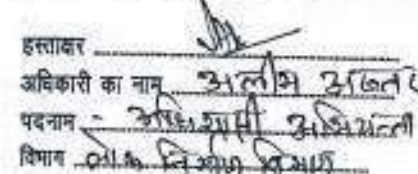 हस्ताक्षर
अधिकारी का नाम अलीम अख्तर
पदनाम - अधिशाषी अभियन्ता
विभाग लोक निर्माण विभाग